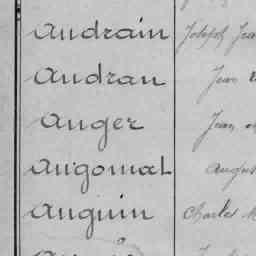 Audrain Joseph Jea
Audran Jean
Anger Jean
Angomat Augus
Anguin Charles M